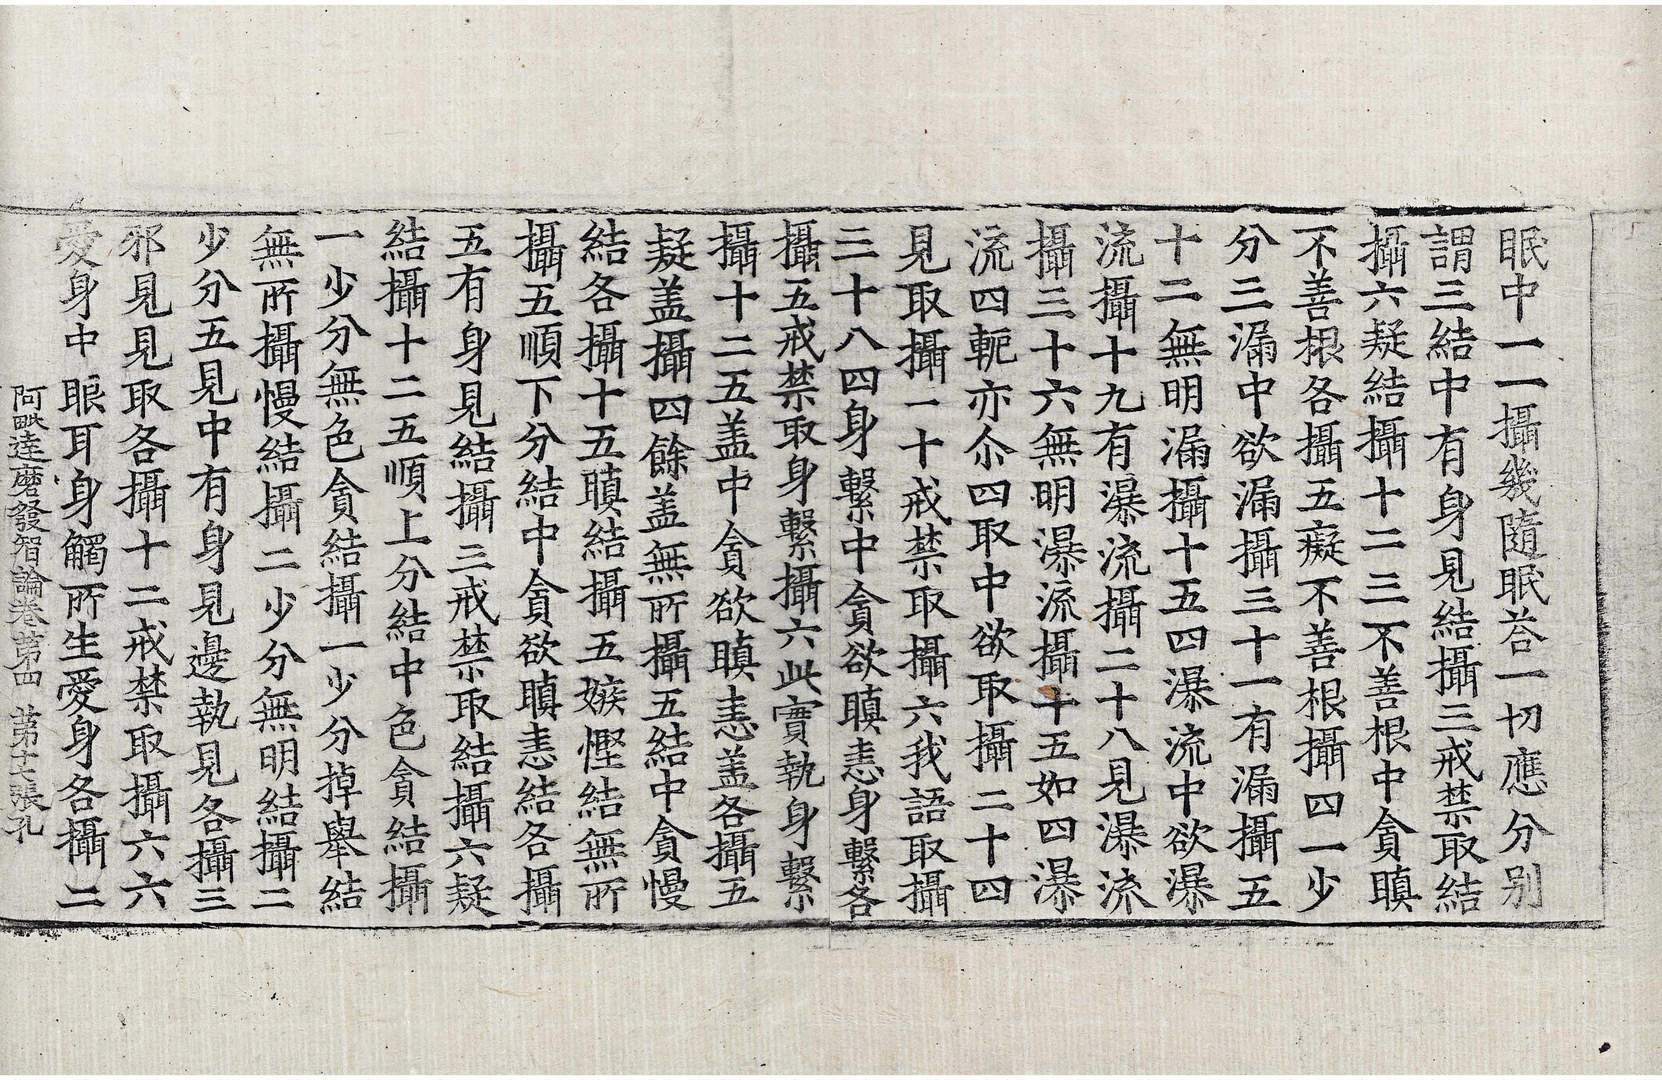 眠中一一攝幾隨眠荅一切應分別
謂三結中有身見結攝三戒禁取結
攝六疑結攝十二三不善根中貪瞋
不善根各攝五癡不善根攝四一少
分三漏中欲漏攝三十一有漏攝五
十二無明漏攝十五四瀑流中欲瀑
流攝十九有瀑流攝二十八見瀑流
攝三十六無明瀑流攝十五如四瀑
流四軛亦尒四取中欲取攝二十四
見取攝一十戒禁取攝六我語取攝
三十八四身繫中貪欲瞋恚身繫各
攝五戒禁取身繫攝六此實執身繫
攝十二五盖中貪欲瞋恚盖各攝五
疑盖攝四餘盖無所攝五結中貪慢
結各攝十五瞋結攝五嫉慳結無所
攝五順下分結中貪欲瞋恚結各攝
五有身見結攝三戒禁取結攝六疑
結攝十二五順上分結中色貪結攝
一少分無色貪結攝一少分掉舉結
無所攝慢結攝二少分無明結攝二
少分五見中有身見邊執見各攝三
邪見見取各攝十二戒禁取攝六六
愛身中眼耳身觸所生愛身各攝二
阿毗達磨發智論卷第四 第十七張孔